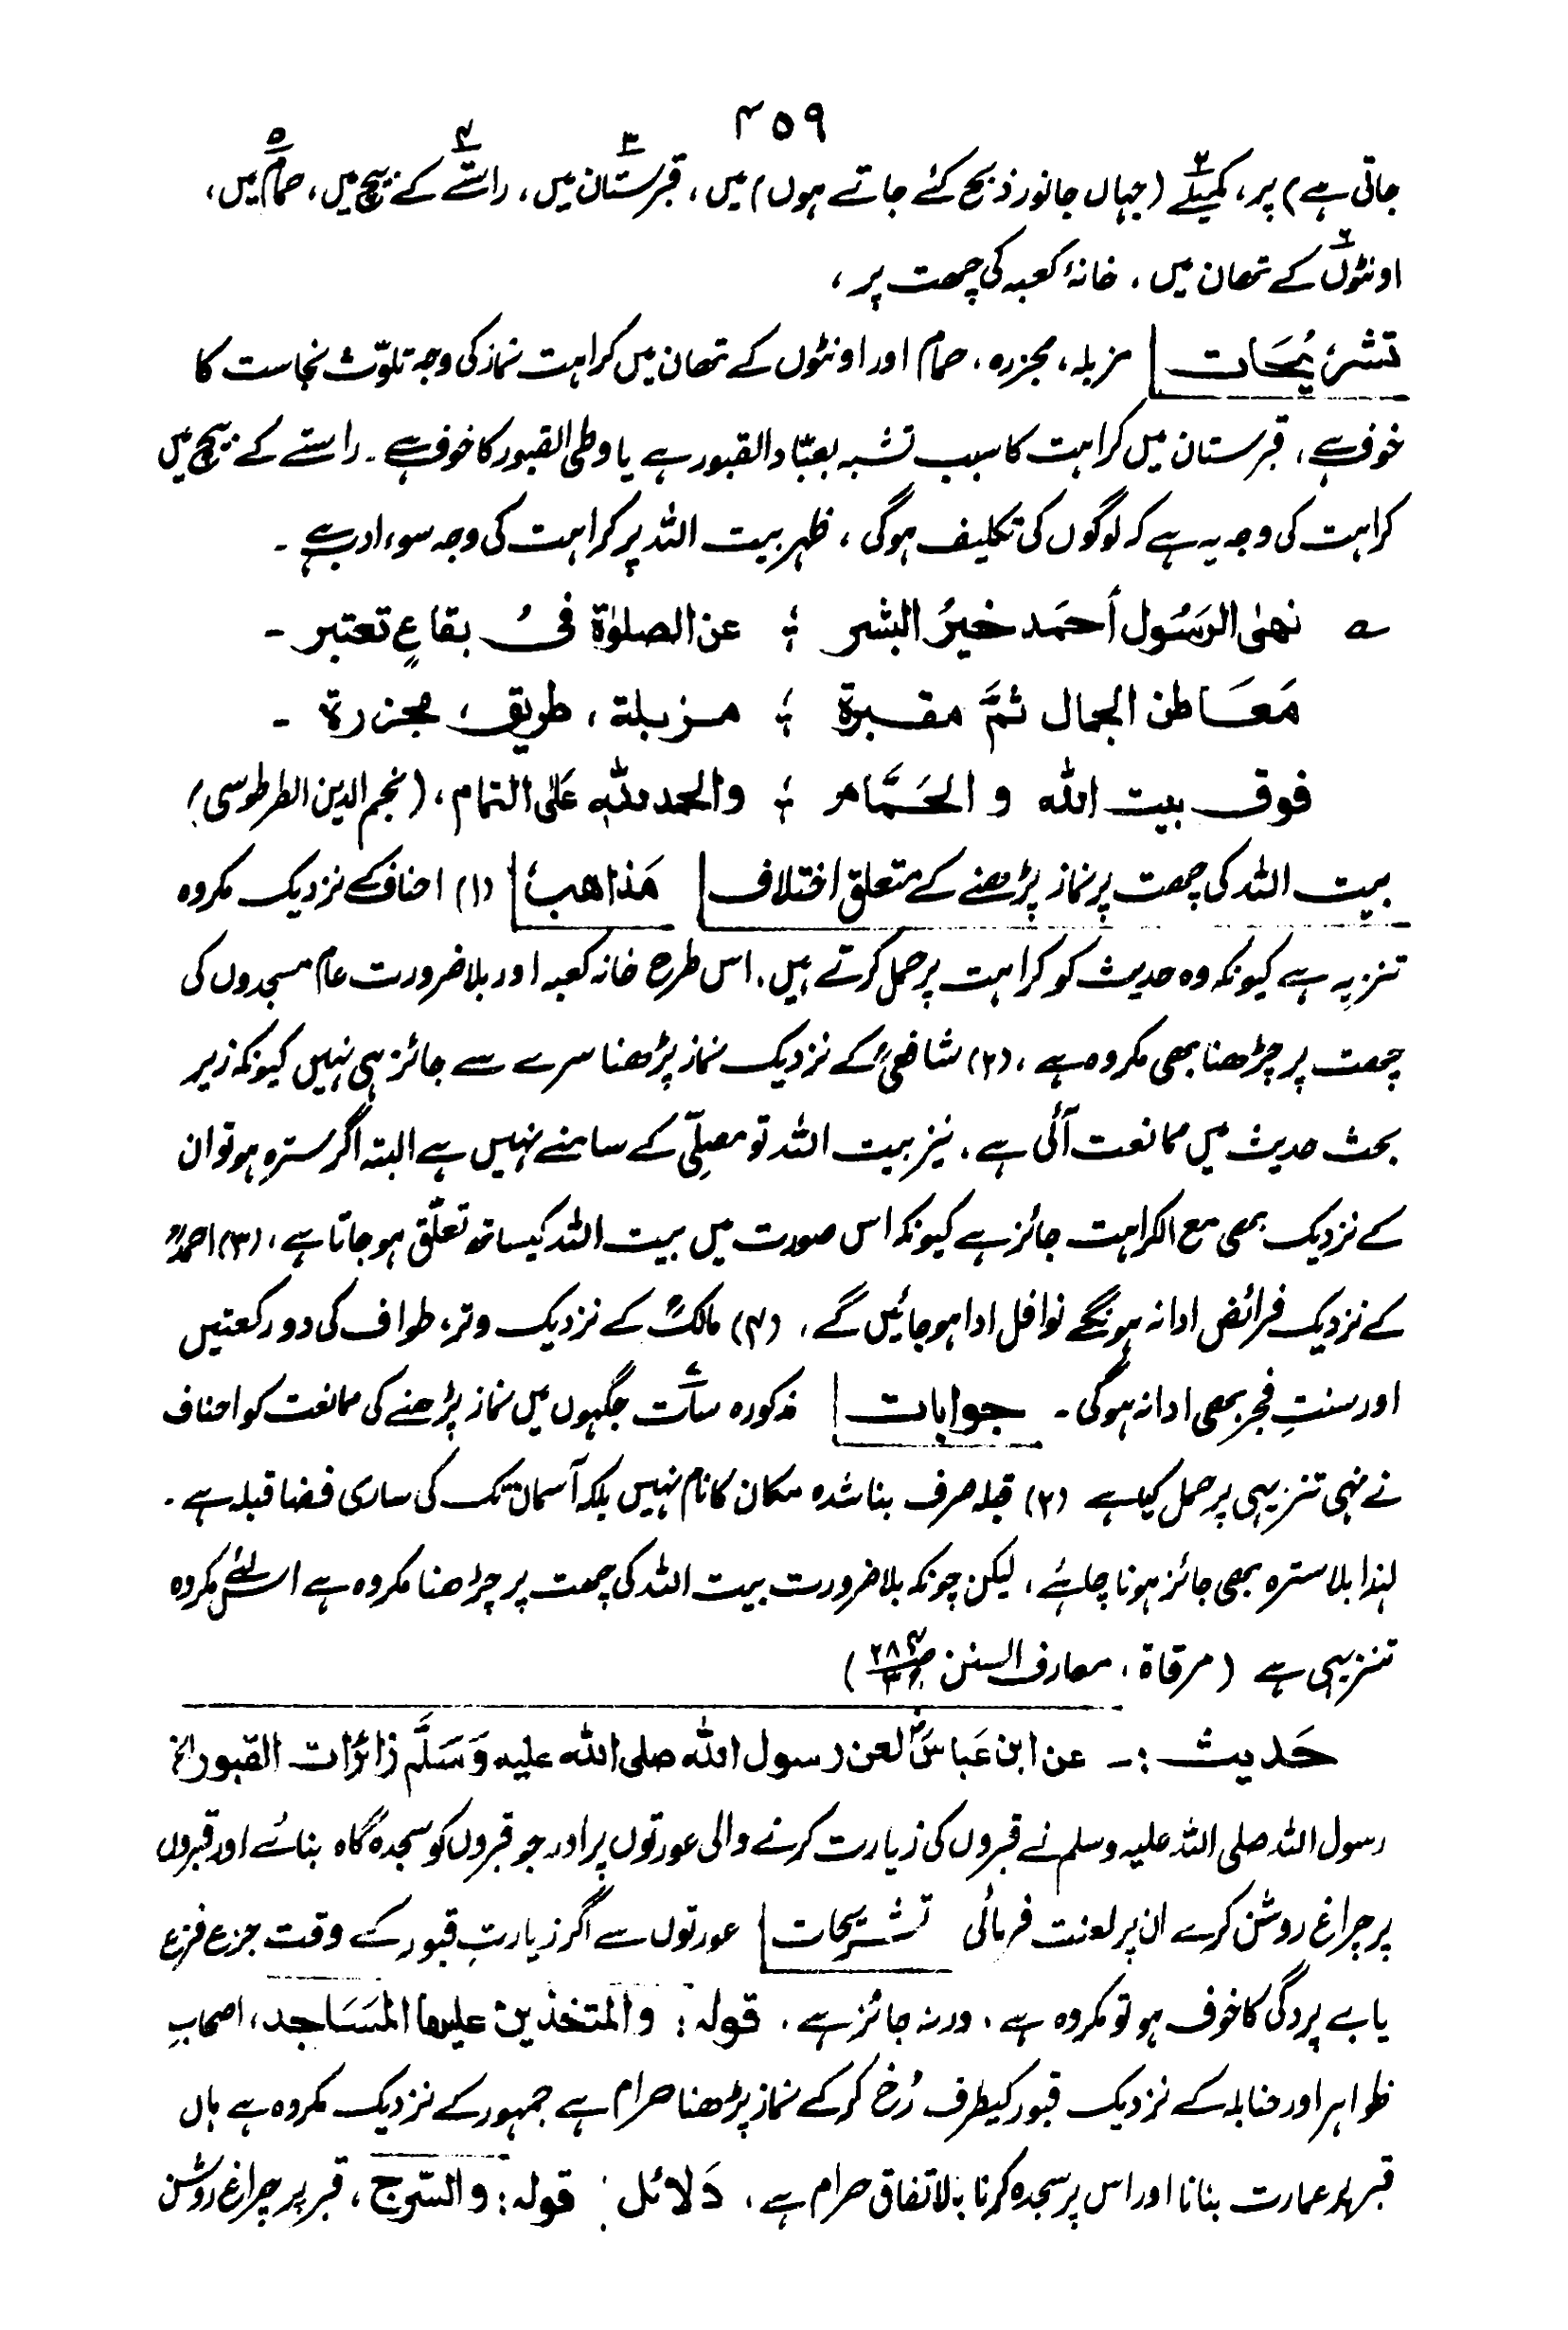 ۴۵۹
جاتی ہے) پر، کمیلے (جہاں جانور ذبح کئے جاتے ہوں) میں، قبرستان میں، راستے کے بیچ میں، حمام میں،
اونٹوں کے تھان میں، خانۂ کعبہ کی چھت پر،
تشریحات مزبلہ، مجزرہ، حمام اور اونٹوں کے تھان میں کراہت نماز کی وجہ تلوّث نجاست کا
خوف ہے، قبرستان میں کراہت کا سبب تشبہ بعبّاد القبور ہے یا وطی القبور کا خوف ہے۔ راستے کے بیچ میں
کراہت کی وجہ یہ ہے کہ لوگوں کی تکلیف ہوگی، ظہر بیت اللہ پر کراہت کی وجہ سوء ادب ہے۔
نھی الرَسُول أحمَد خیرُ البشر ؛ عن الصلوٰۃ فیْ بقاعٍ تعتبر ۔
مَعَاطن الجمال ثمَّ مقبرۃ ؛ مزبلۃ، طریق، مجزرۃ ۔
فوق بیت اللہ و الحَمَّام ؛ والحمد للّٰہ عَلی التمام، (نجم الدین الطرطوسی)
بیت اللہ کی چھت پر نماز پڑھنے کے متعلق اختلاف مَذاھب (۱) احناف کے نزدیک مکروہ
تنزیہ ہے کیونکہ وہ حدیث کو کراہت پر حمل کرتے ہیں، اس طرح خانہ کعبہ اور بلا ضرورت عام مسجدوں کی
چھت پر چڑھنا بھی مکروہ ہے، (۲) شافعیؒ کے نزدیک نماز پڑھنا سرے سے جائز ہی نہیں کیونکہ زیر
بحث حدیث میں ممانعت آئی ہے، نیز بیت اللہ تو مصلِّی کے سامنے نہیں ہے البتہ اگر سترہ ہو تو ان
کے نزدیک بھی مع الکراہت جائز ہے کیونکہ اس صورت میں بیت اللہ کیساتھ تعلّق ہو جاتا ہے، (۳) احمدؒ
کے نزدیک فرائض ادا نہ ہونگے نوافل ادا ہو جائیں گے، (۴) مالکؒ کے نزدیک وتر، طواف کی دو رکعتیں
اور سنتِ فجر بھی ادا نہ ہوگی ۔ جوابات مذکورہ سات جگہوں میں نماز پڑھنے کی ممانعت کو احناف
نے نہی تنزیہی پر حمل کیا ہے (۲) قبلہ صرف بنا شدہ مکان کا نام نہیں بلکہ آسمان تک کی ساری فضا قبلہ ہے ۔
لہٰذا بلا سترہ بھی جائز ہونا چاہئے، لیکن چونکہ بلا ضرورت بیت اللہ کی چھت پر چڑھنا مکروہ ہے اسلئے مکروہ
تنزیہی ہے (مرقاۃ، معارف السنن
حَدیث :۔ عن ابن عَباسؓ لعن رسول اللہ صلی اللہ علیہ وَسَلَّم زائرات القبور الخ
رسول اللہ صلی اللہ علیہ وسلم نے قبروں کی زیارت کرنے والی عورتوں پر اور جو قبروں کو سجدہ گاہ بنائے اور قبروں
پر چراغ روشن کرے ان پر لعنت فرمائی تشریحات عورتوں سے اگر زیارتِ قبور کے وقت جزع فزع
یا بے پردگی کا خوف ہو تو مکروہ ہے، ورنہ جائز ہے، قولہ : والمتخذین علیھا المَسَاجد، اصحابِ
ظواہر اور حنابلہ کے نزدیک قبور کیطرف رُخ کر کے نماز پڑھنا حرام ہے جمہور کے نزدیک مکروہ ہے ہاں
قبر پر عمارت بنانا اور اس پر سجدہ کرنا بالاتفاق حرام ہے، دَلائل : قولہ : والسّرج، قبر پر چراغ روشن